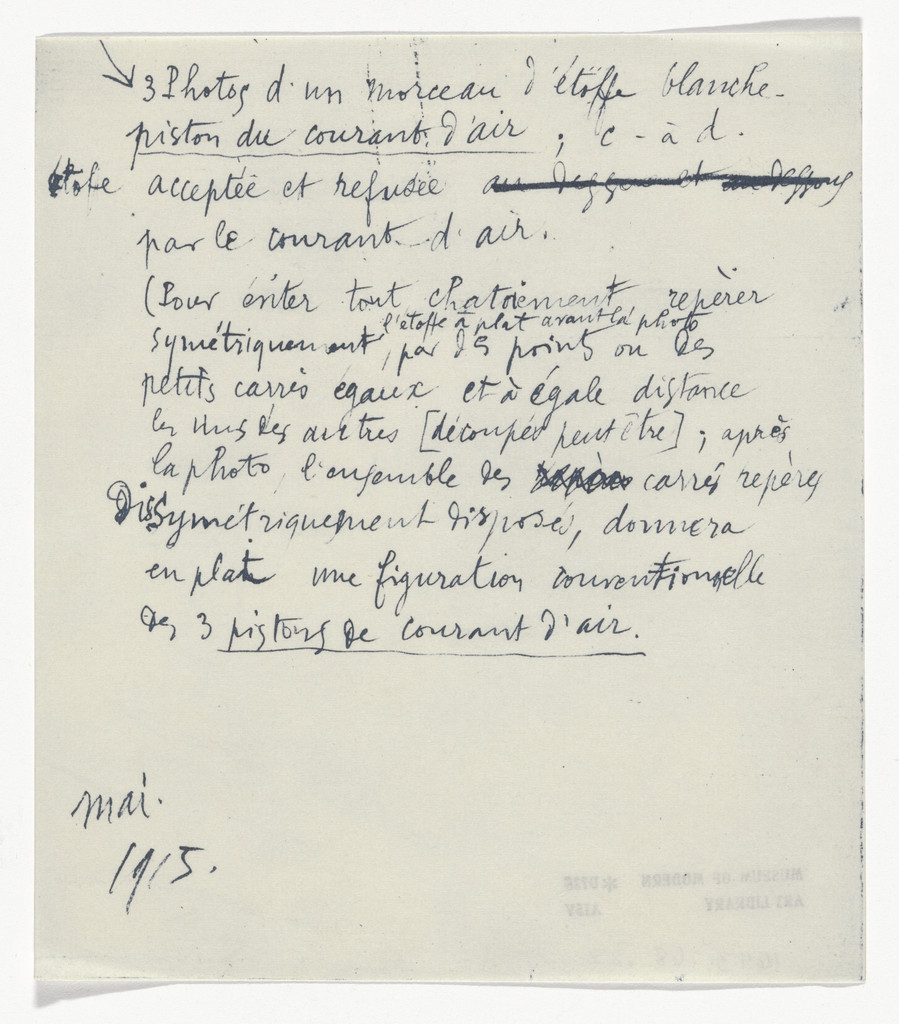 3 Photos d'un morceau d'étoffe blanche -
piston du courant d'air ; c - à d.
étofe acceptée et refusée au dessous et au dessous
par le courant d'air.
(Pour éviter tout chatoiement, repérer
l'étoffe à plat avant la photo
symétriquement, par des points ou des
petits carrés égaux et à égale distance
les uns des autres [découpés peut être] ; après
la photo, l'ensemble des carrés repères
Dissymétriquement disposés, donnera
en plat une figuration conventionnelle
des 3 pistons de courant d'air.
mai.
1915.
MUSEUM OF MODERN
ART LIBRARY